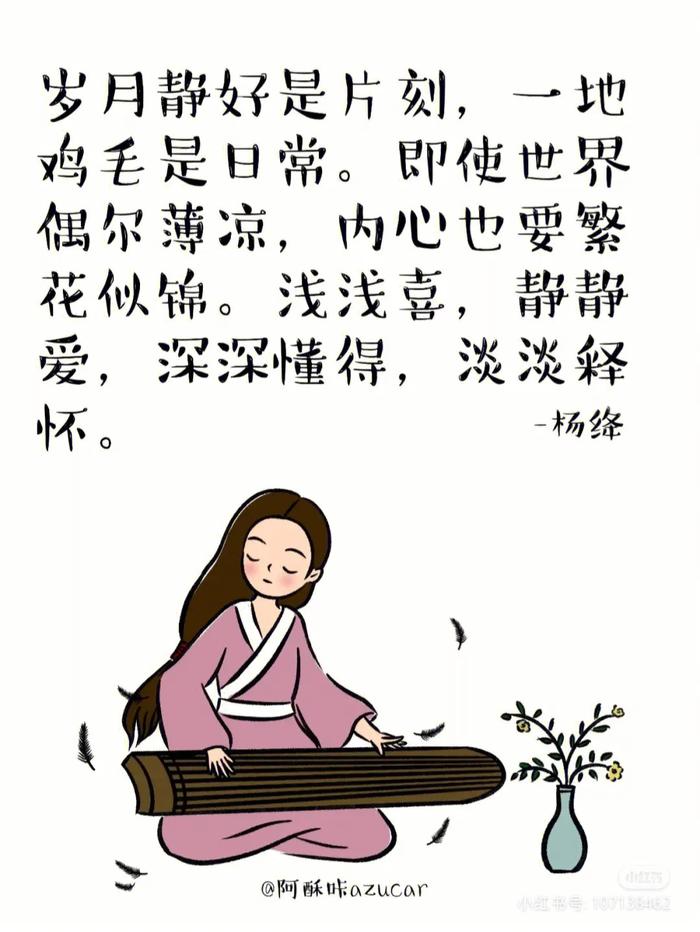 岁月静好是片刻，一地
鸡毛是日常。即使世界
偶尔薄凉，内心也要繁
花似锦。浅浅喜，静静
爱，深深懂得，淡淡释
怀。
-杨绛
@阿酥咔azucar
小红书
小红书号: 107138462